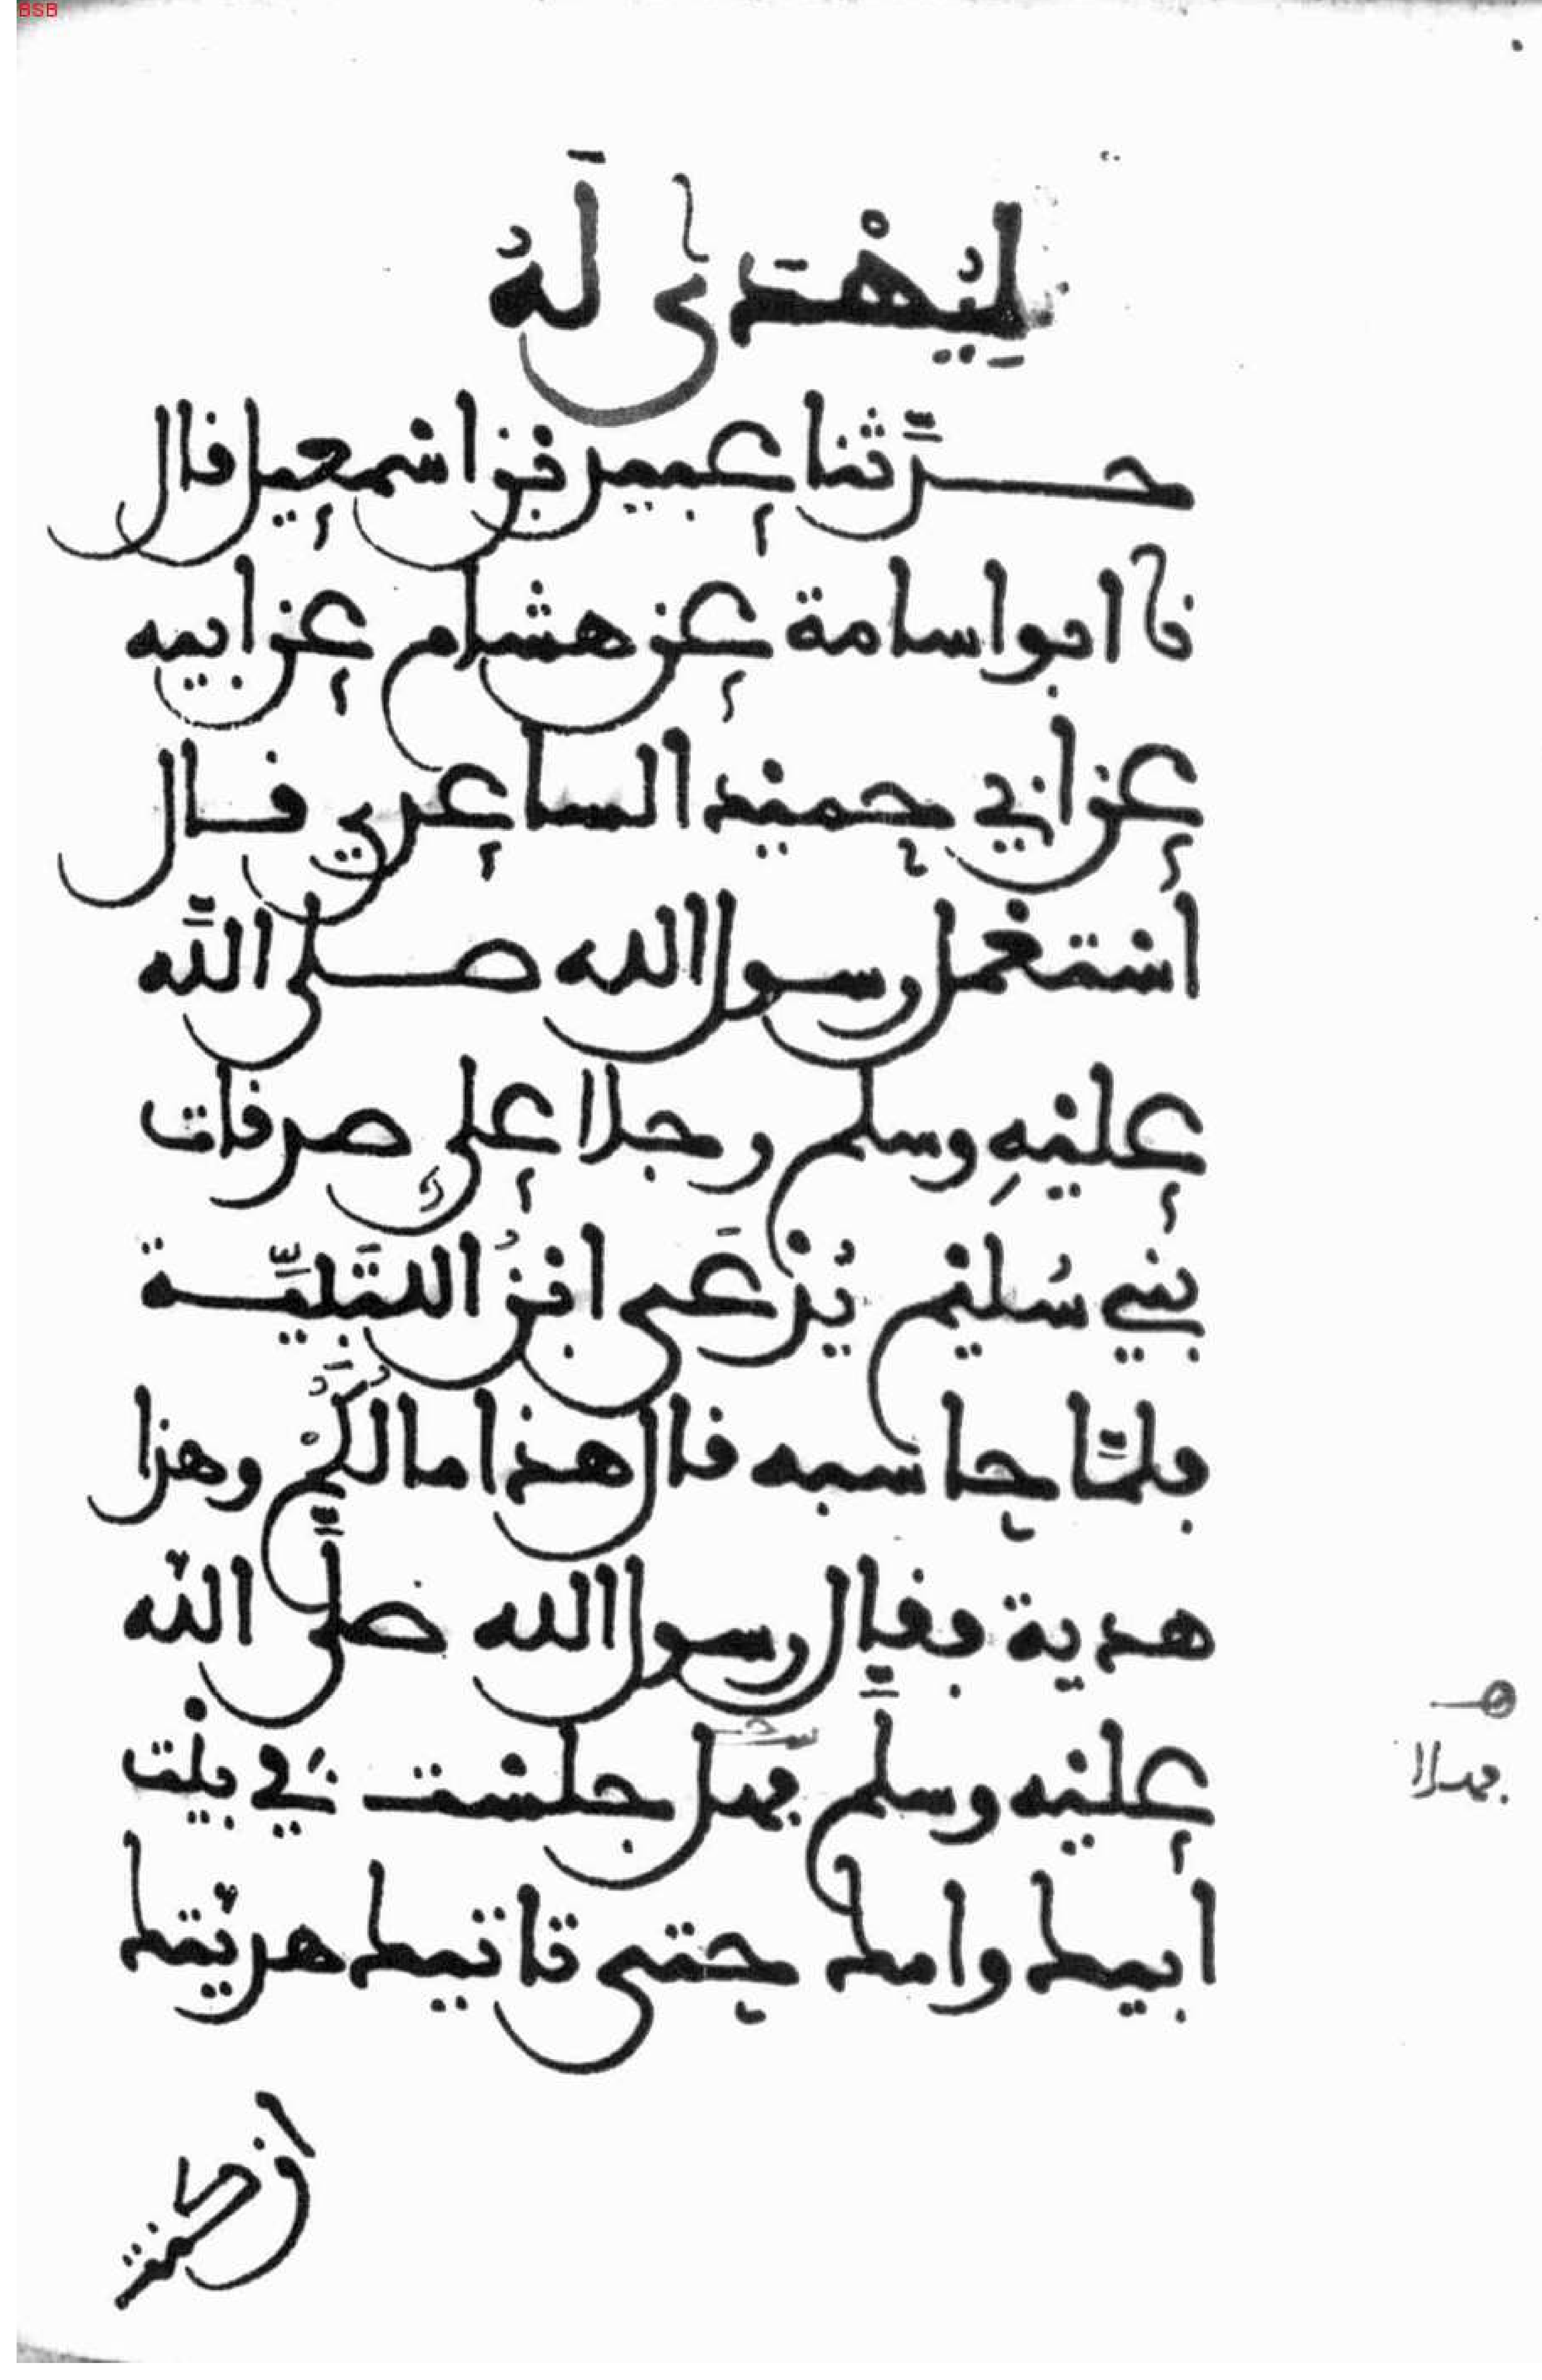 BSB
لِيُهْدَى لَهُ
حدَّثنا عبيد بن اسمعيل قال
نا ابو اسامة عن هشام عن ابيه
عن ابي حميد الساعدي قال
استعمل رسول الله صلى اللَّه
عليْهِ وسلم رجلا على صدقات
بني سُليْم يُدْعَى ابنُ اللتَبِيَّة
فلمَّا حاسبه قال هذا مالُكُمْ وهذا
هدية فقال رسول الله صلَّى الله
عليْه وسلَّم فهل جلست في بيْت
فهلا
ابيك وامك حتى تاتيك هديّتك
ان كنت